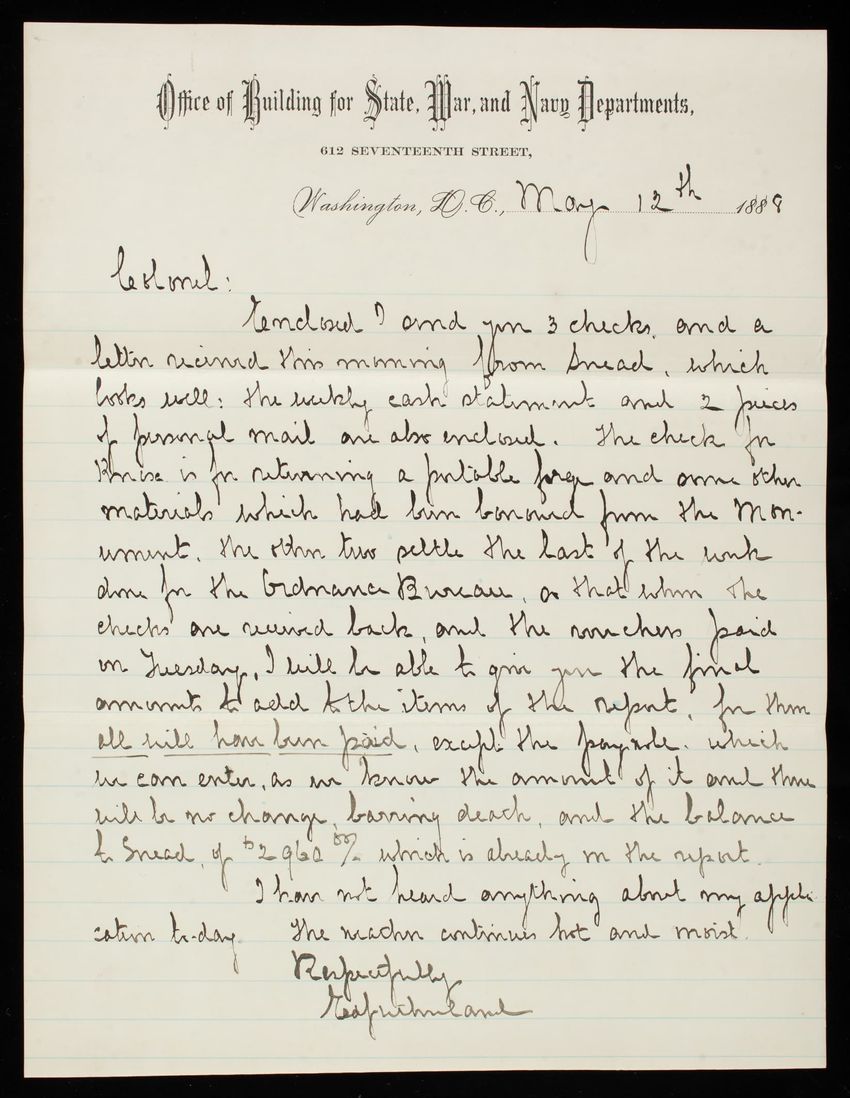 Office of Building for State, War, and Navy Departments,
612 SEVENTEENTH STREET,
Washington, D.C., May 12th 1888
Colonel:
Enclosed I send you 3 checks, and a
letter received this morning from Snead, which
looks well: the weekly cash statement and 2 pieces
of personal mail are also enclosed. The check for
is for returning a portable forge and some other
materials which had been borrowed from the Mon-
ument. The other two settle the last of the work
done for the Ordnance Bureau, so that when the
checks are received back, and the vouchers paid
on Tuesday, I will be able to give you the final
amounts to add to the items of the report, for then
all will have been paid, except the payrole. which
we can enter, as we know the amount of it and there
will be no change, barring death, and the balance
to Snead, of $2960 00/ which is already in the report.
I have not heard anything about my appli-
cation to-day. The weather continues hot and moist.
Respectfully